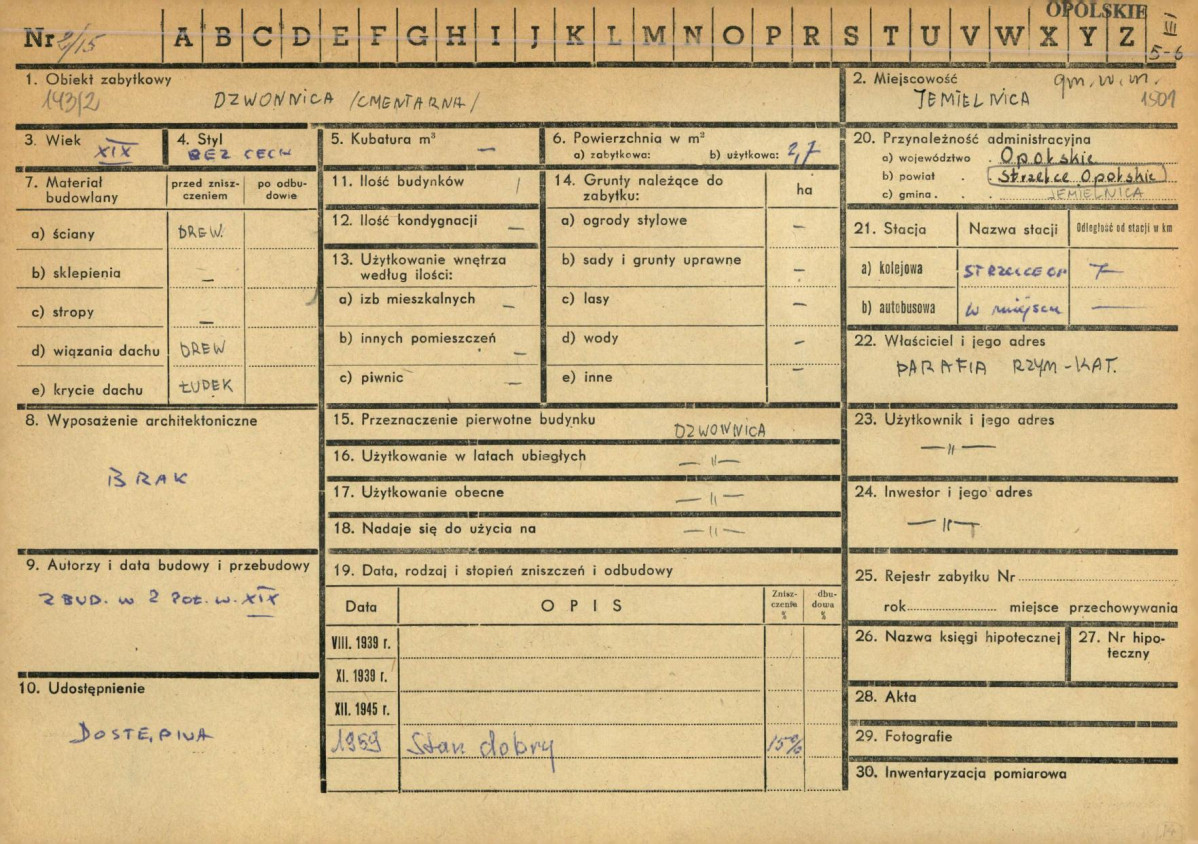 OPOLSKIE
Nr 2/15 A B C D E F G H I J K L M N O P R S T U V W X Y Z III
5-6
1. Obiekt zabytkowy
143/2 DZWONNICA /CMENTARNA/
2. Miejscowość gm. w. m.
JEMIELNICA 1501
3. Wiek
XIX
4. Styl
BEZ CECH
5. Kubatura m³ —
6. Powierzchnia w m²
a) zabytkowa: b) użytkowa: 2,7
7. Materiał budowlany
przed zniszczeniem
po odbudowie
a) ściany DREW.
b) sklepienia —
c) stropy —
d) wiązania dachu DREW
e) krycie dachu ŁUDEK
8. Wyposażenie architektoniczne
BRAK
9. Autorzy i data budowy i przebudowy
ZBUD. W 2 POŁ. W. XIX
10. Udostępnienie
DOSTĘPNA
11. Ilość budynków 1
12. Ilość kondygnacji —
13. Użytkowanie wnętrza
według ilości:
a) izb mieszkalnych —
b) innych pomieszczeń —
c) piwnic —
14. Grunty należące do
zabytku: ha
a) ogrody stylowe —
b) sady i grunty uprawne —
c) lasy —
d) wody —
e) inne —
15. Przeznaczenie pierwotne budynku DZWONNICA
16. Użytkowanie w latach ubiegłych —"—
17. Użytkowanie obecne —"—
18. Nadaje się do użycia na —"—
19. Data, rodzaj i stopień zniszczeń i odbudowy
Data OPIS Zniszczenie % dbudowa %
VIII. 1939 r.
XI. 1939 r.
XII. 1945 r.
1959 Stan dobry 15%
20. Przynależność administracyjna
a) województwo . Opolskie
b) powiat . Strzelce Opolskie
c) gmina . . JEMIELNICA
21. Stacja Nazwa stacji Odległość od stacji w km
a) kolejowa STRZELCE OP 7
b) autobusowa w miejscu —
22. Właściciel i jego adres
PARAFIA RZYM-KAT.
23. Użytkownik i jego adres
—"—
24. Inwestor i jego adres
—"—
25. Rejestr zabytku Nr
rok miejsce przechowywania
26. Nazwa księgi hipotecznej
27. Nr hipoteczny
28. Akta
29. Fotografie
30. Inwentaryzacja pomiarowa